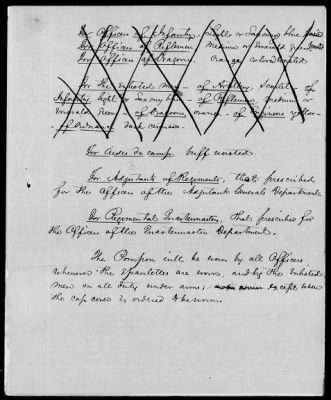 For Officers of Infantry, Light or Saxony blue
For Officers of Riflemen Medium or Emerald green
For Officers of Dragoons Orange colored
For the enlisted men - of Artillery, Scarlet - of
Infantry, light or Saxony blue - of Riflemen, medium or
Emerald Green - of Dragoons orange - of yellow -
of Ordnance dark crimson.
For Aides de camp, buff worsted.
For Adjutants of Regiments, that prescribed
for the Officers of the Adjutant Generals Department
For Regimental Quartermasters, that prescribed for
the Officers of the Quartermasters Department.
The Pompon will be worn by all Officers
whenever the Epaulettes are worn, and by the Enlisted
men on all duty under arms, caps when
the cap cover is ordered to be worn.